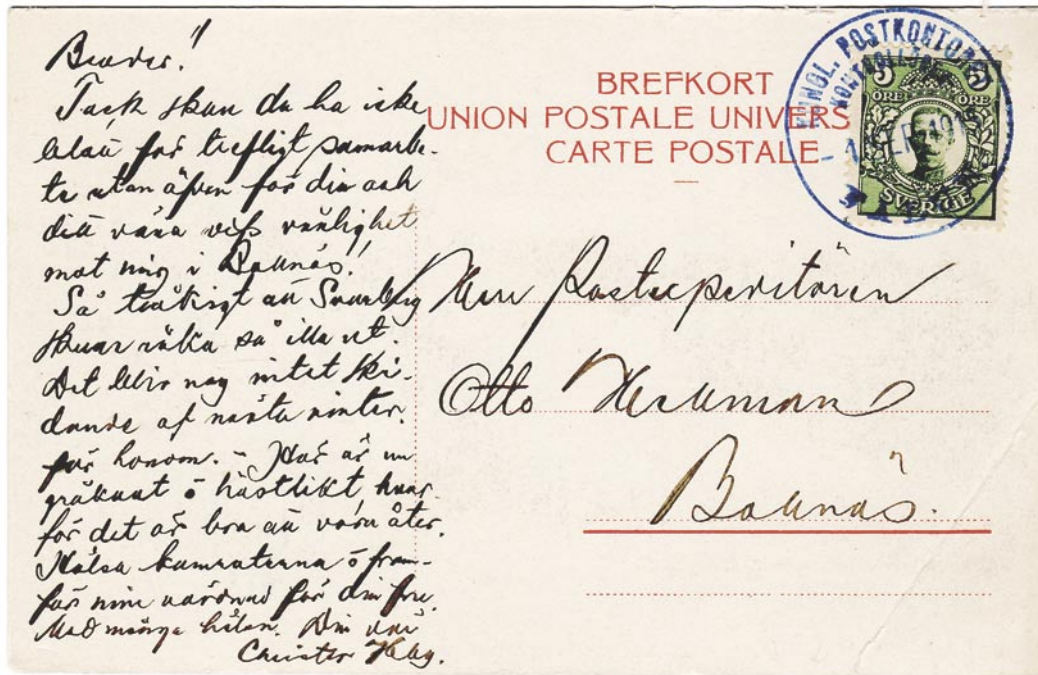 Broder!
Tack skall du ha icke
blott för trefligt samarbe-
te utan äfven för din och
ditt vänlighet
mot mig i Bollnäs!
Så tråkigt att
skuar råka så illa ut.
Det blir nog intet ski-
dande af nästa vinter
för honom. - Här är nu
gråkallt o höstlikt, hvar-
för det är bra att vara åter.
Hälsa kamraterna o fram-
för min vördnad för din fru.
Med många hälsn. Din vän
Christer
BREFKORT
UNION POSTALE UNIVERS
CARTE POSTALE
KUNGL. POSTKONTORET
KONTROLLÖREN
5 5
ÖRE ÖRE
SVERIGE
Herr Postexpeditören
Otto Heckman
Bollnäs.